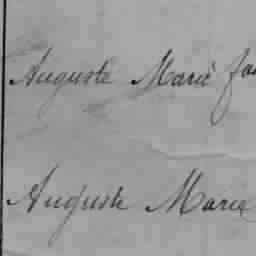 Auguste Marie
Auguste Marie